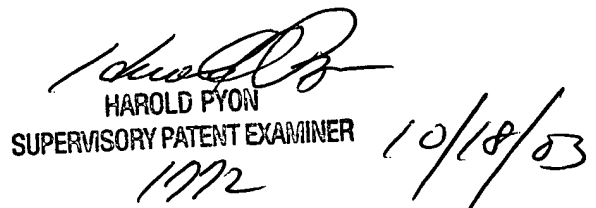 HAROLD PYON
SUPERVISORY PATENT EXAMINER
1772
10/18/03